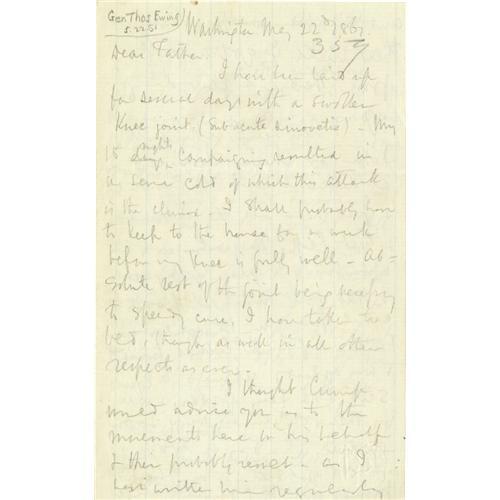 Gen Thos Ewing
5.22.61
Washington May 22d 1861
359
Dear Father.
I have been laid up
for several days with a swollen
Knee joint (Subacute Sinovetis) - My
15 nights campaigning resulted in
a severe cold of which this attack
is the climax. I shall probably have
to keep to the house for a week
before my knee is fully well - Ab=
solute rest of the joint being necessary
to speedy cure, I have taken to
bed, though as well in all other
respects as ever.
I thought Crump
would advise you as to the
movements here in his behalf
& their probable result - as I
have written him regularly